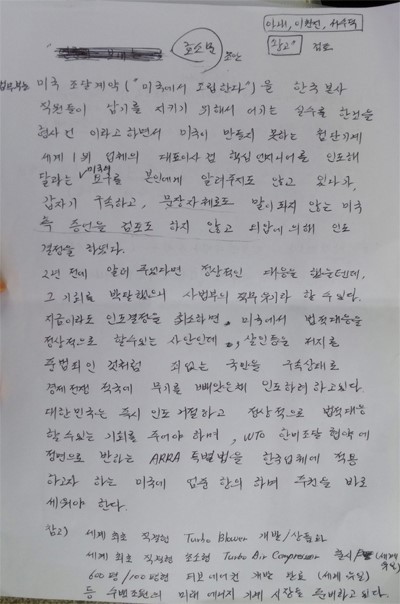 아내, 이헌언, 사우덕
호소문 초안
참고 검토
미국 조달계약 ("미국에서 조립한다")을 한국본사
직원들이 납기를 지키기 위해서 어기는 실수를 한것을
형사건 이라고 하면서 미국이 만들지 못하는 첨단기계
세계 1위 업체의 대표이사겸 핵심 엔지니어를 인도해
달라는 미국의 요구를 본인에게 알려주지도 않고 있다가,
갑자기 구속하고, 말이 되지 않는 미국
측 증언을 검토도 하지 않고 외압에 의해 인도
결정을 하였다.
2년 전에 알려 주었다면 정상적인 대응을 했을텐데,
그 기회를 박탈했으니 사법부의 직무유기라 할 수 있다.
지금이라도 인도결정을 취소하면, 미국에서 법적대응을
정상적으로 할수있는 사안인데, 살인등을 저지른
중범죄인 것처럼 죄없는 국민을 구속상태로
경제전쟁 적국에 무기를 빼앗은채 인도하려 하고있다.
대한민국은 즉시 인도 거절하고 정상적으로 법적대응
할 수 있는 기회를 주어야 하며, WTO 정부조달 협약에
정면으로 반하는 ARRA 특별법을 한국업체에 적용
하고자 하는 미국에 엄중 항의 하며 주권을 바로
세워야 한다.
참고) 세계 최초 직결형 Turbo Blower 개발/상품화
세계 최초 직결형 초소형 Turbo Air Compressor 출시 (세계 유일)
600 /100 터보 에어컨 개발 완료 (세계 유일)
등 수백조원의 미래 에너지 기계 시장을 준비하고 있다.